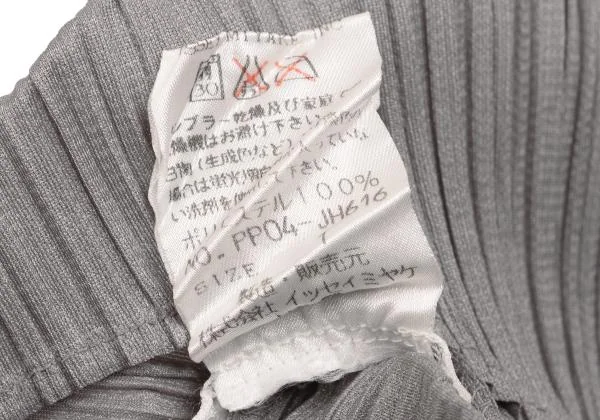 30
ンブラー乾燥及び家庭
燥機はお避け下さい。
(生成色など)
場合は蛍光
い洗剤を
ポリエステル100%
NO. PP04-JH616
SIZE 1
製造・販売元
株式会社 イッセイミヤケ